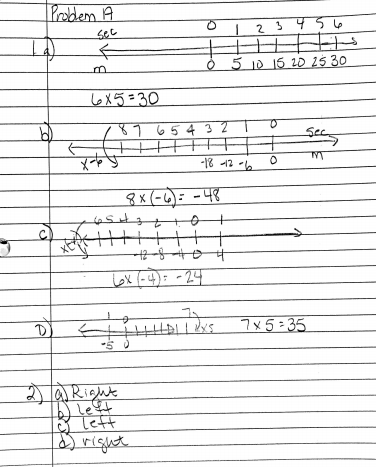 Problem 1A
sec 0 1 2 3 4 5 6
1. a)
m 0 5 10 15 20 25 30
6×5=30
b) 8 7 6 5 4 3 2 1 0 sec
x-6 -18 -12 -6 0 m
8×(-6)= -48
6 5 4 3 2 1 0 1
c) x-4
-12 -8 -4 0 4
6×(-4)= -24
1 0 7
D) x5 7×5=35
-5 0
2) a) Right
b) Left
c) Left
d) right